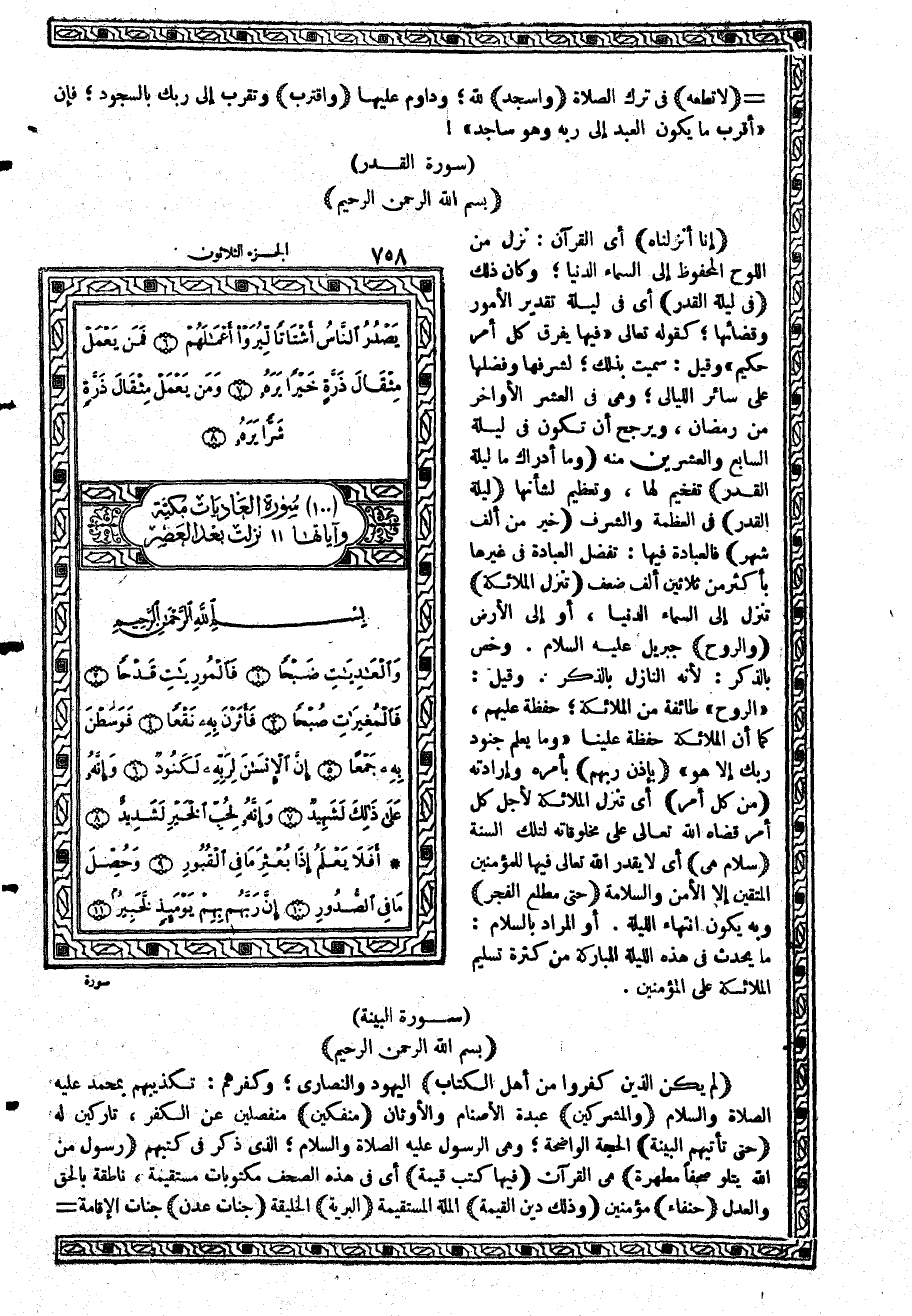 =(لا تطعه) فى ترك الصلاة (واسجد) لله ؛ وداوم عليها (واقترب) وتقرب إلى ربك بالسجود ؛ فإن
«أقرب ما يكون العبد إلى ربه وهو ساجد» !
(سورة القدر)
(بسم الله الرحمن الرحيم)
(إنا أنزلناه) أى القرآن : نزل من
اللوح المحفوظ إلى السماء الدنيا ؛ وكان ذلك
(فى ليلة القدر) أى فى ليلة تقدير الأمور
وقضائها ؛ كقوله تعالى «فيها يفرق كل أمر
حكيم» وقيل : سميت بذلك ؛ لشرفها وفضلها
على سائر الليالى ؛ وهى فى العشر الأواخر
من رمضان ، ويرجح أن تكون فى ليلة
السابع والعشرين منه (وما أدراك ما ليلة
القدر) تفخيم لها ، وتعظيم لشأنها (ليلة
القدر) فى العظمة والشرف (خير من ألف
شهر) فالعبادة فيها : تفضل العبادة فى غيرها
بأكثر من ثلاثين ألف ضعف (تنزل الملائكة)
تنزل إلى السماء الدنيا ، أو إلى الأرض
(والروح) جبريل عليه السلام . وخص
بالذكر : لأنه النازل بالذكر . وقيل :
«الروح» طائفة من الملائكة ؛ حفظة عليهم ،
كما أن الملائكة حفظة علينا «وما يعلم جنود
ربك إلا هو» (بإذن ربهم) بأمره وإرادته
(من كل أمر) أى تنزل الملائكة لأجل كل
أمر قضاه الله تعالى على مخلوقاته لتلك السنة
(سلام هى) أى لا يقدر الله تعالى فيها للمؤمنين
المتقين إلا الأمن والسلامة (حتى مطلع الفجر)
وبه يكون انتهاء الليلة . أو المراد بالسلام :
ما يحدث فى هذه الليلة المباركة من كثرة تسليم
الملائكة على المؤمنين .
٧٥٨ الجزء الثلاثون
يَصْدُرُ ٱلنَّاسُ أَشْتَاتًا لِّيُرَوْا۟ أَعْمَـٰلَهُمْ ٦ فَمَن يَعْمَلْ
مِثْقَالَ ذَرَّةٍ خَيْرًا يَرَهُۥ ٧ وَمَن يَعْمَلْ مِثْقَالَ ذَرَّةٍ
شَرًّا يَرَهُۥ ٨
(١٠٠) سُورَة العَاديَات مَكيَّة
وَآيَاتهَا ١١ نزلت بَعد العَصر
بِسْمِ ٱللَّهِ ٱلرَّحْمَـٰنِ ٱلرَّحِيمِ
وَٱلْعَـٰدِيَـٰتِ ضَبْحًا ١ فَٱلْمُورِيَـٰتِ قَدْحًا ٢
فَٱلْمُغِيرَٰتِ صُبْحًا ٣ فَأَثَرْنَ بِهِۦ نَقْعًا ٤ فَوَسَطْنَ
بِهِۦ جَمْعًا ٥ إِنَّ ٱلْإِنسَـٰنَ لِرَبِّهِۦ لَكَنُودٌ ٦ وَإِنَّهُۥ
عَلَىٰ ذَٰلِكَ لَشَهِيدٌ ٧ وَإِنَّهُۥ لِحُبِّ ٱلْخَيْرِ لَشَدِيدٌ ٨
* أَفَلَا يَعْلَمُ إِذَا بُعْثِرَ مَا فِى ٱلْقُبُورِ ٩ وَحُصِّلَ
مَا فِى ٱلصُّدُورِ ١٠ إِنَّ رَبَّهُم بِهِمْ يَوْمَئِذٍ لَّخَبِيرٌۢ ١١
سورة
(ســورة البينة)
(بسم الله الرحمن الرحيم)
(لم يكن الذين كفروا من أهل الكتاب) اليهود والنصارى ؛ وكفرهم : تكذيبهم بمحمد عليه
الصلاة والسلام (والمشركين) عبدة الأصنام والأوثان (منفكين) منفصلين عن الكفر ، تاركين له
(حتى تأتيهم البينة) الحجة الواضحة ؛ وهى الرسول عليه الصلاة والسلام ؛ الذى ذكر فى كتبهم (رسول من
الله يتلو صحفاً مطهرة) هى القرآن (فيها كتب قيمة) أى فى هذه الصحف مكتوبات مستقيمة ، ناطقة بالحق
والعدل (حنفاء) مؤمنين (وذلك دين القيمة) الملة المستقيمة (البرية) الخليقة (جنات عدن) جنات الإقامة=